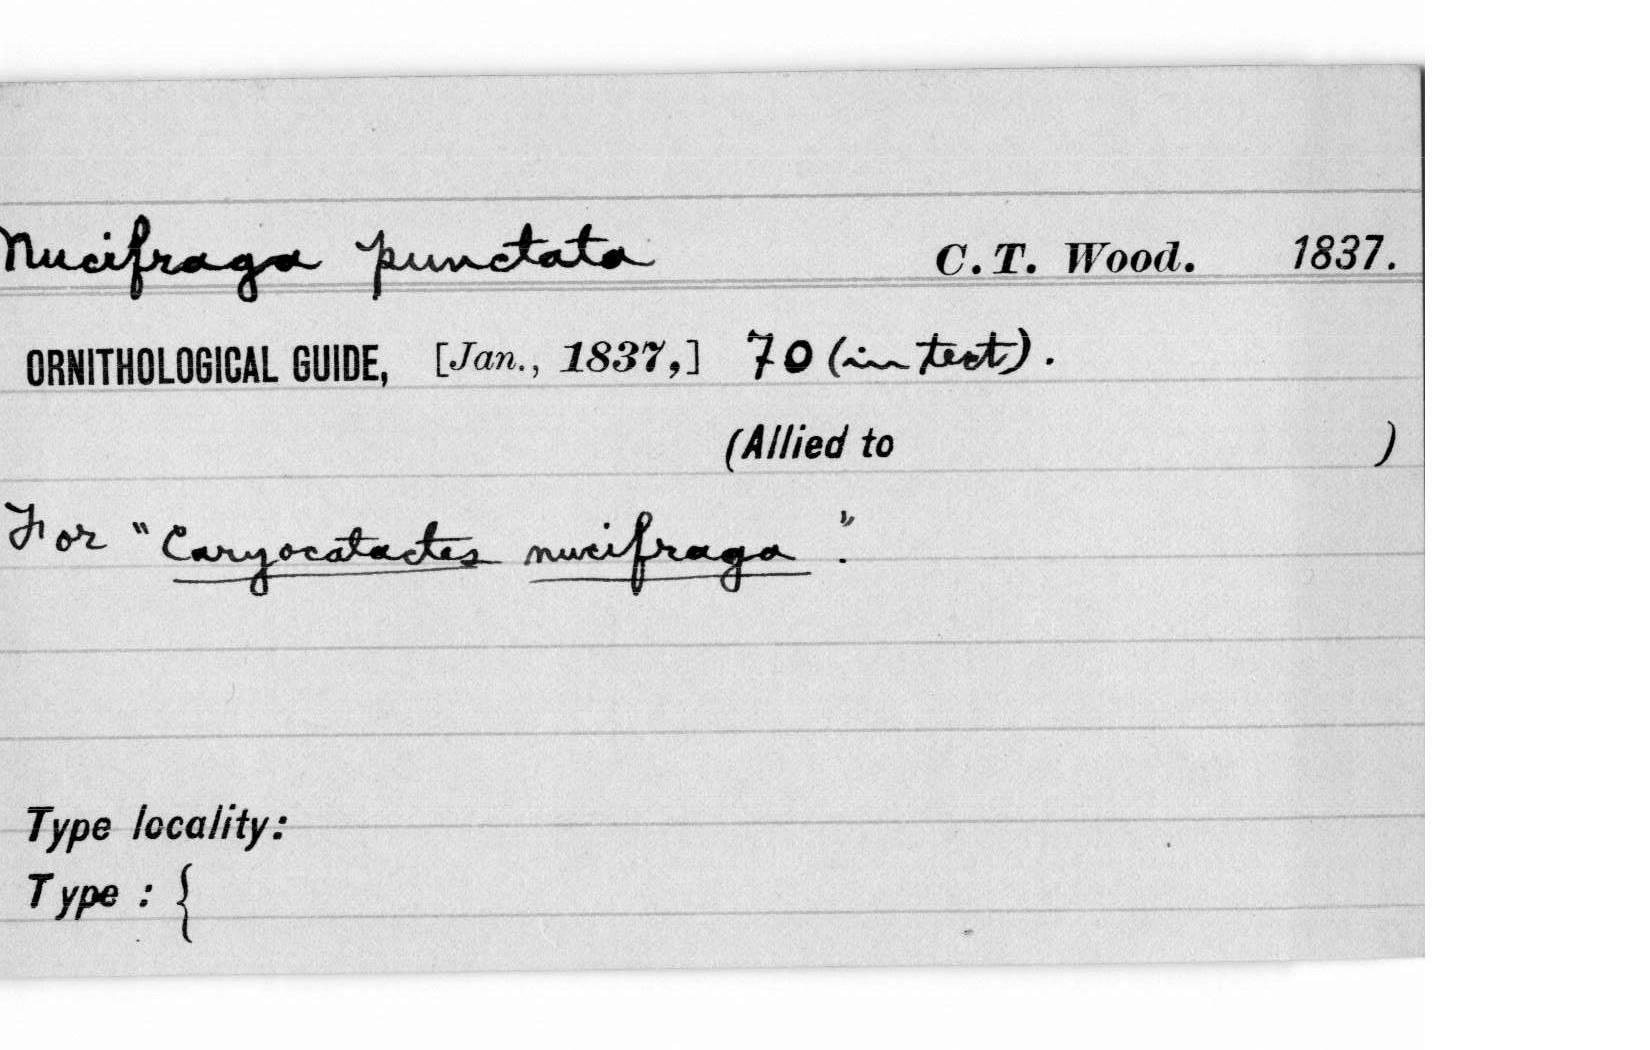 Nucifraga punctata C. T. Wood. 1837.
ORNITHOLOGICAL GUIDE, [Jan., 1837,] 70 (in text).
(Allied to )
For "Caryocatactes nucifraga".
Type locality:
Type : {